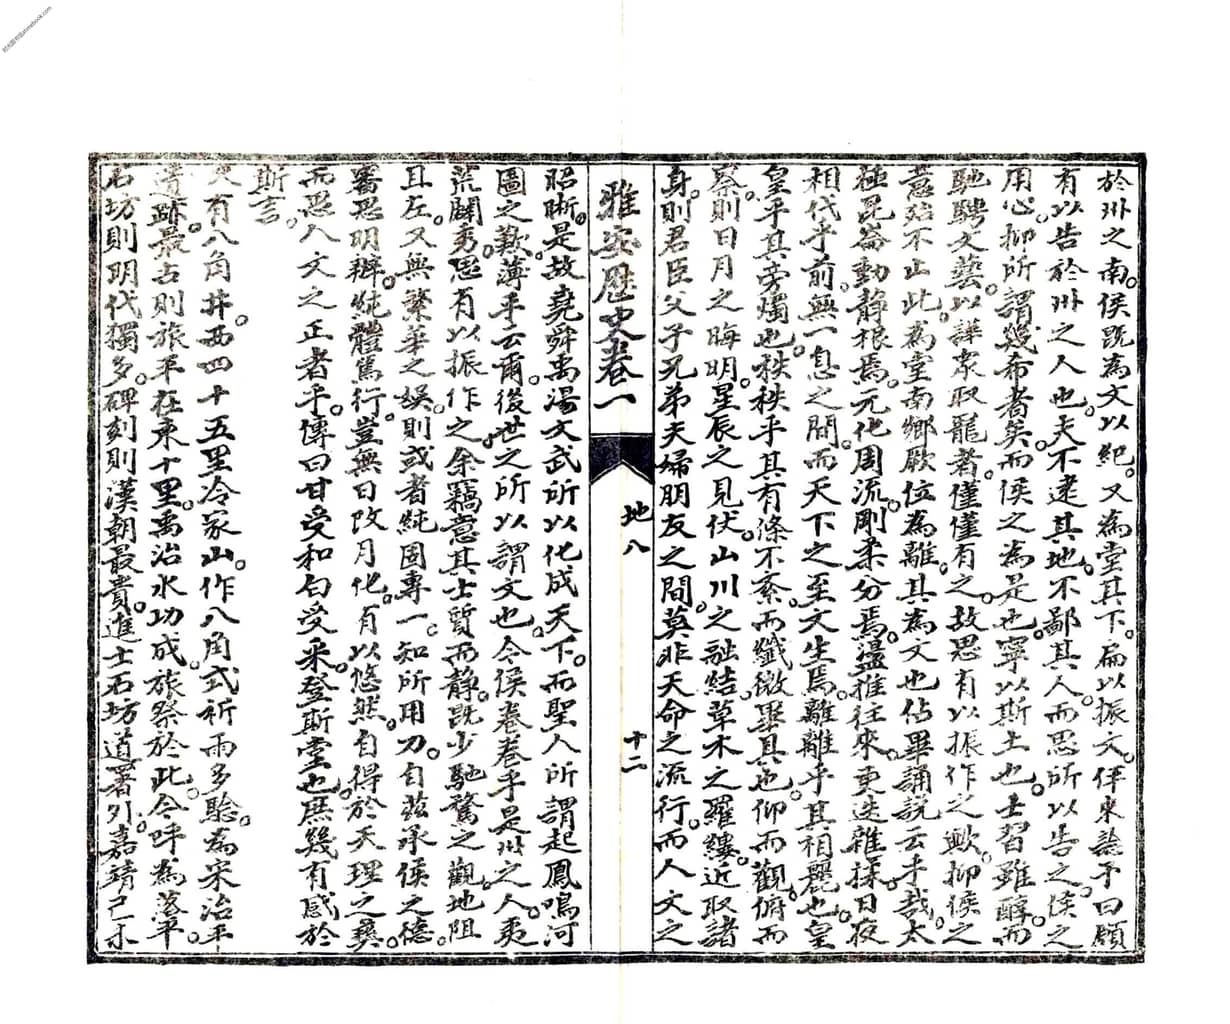 於州之南。侯既為文以紀。又為堂其下。扁以振文。伻來諗予曰願
有以告於州之人也。夫不遠其地。不鄙其人。而思所以告之。侯之
用心。抑所謂幾希者矣。而侯之為是也。寧以斯土也。士習雖醇。而
馳騁文藝。以譁衆取寵者。僅僅有之。故思有以振作之歟。抑侯之
意殆不止此。為堂南鄉。厥位為離。其為文也。佔畢誦說云乎哉。太
極毘崙。動靜根焉。元化周流。剛柔分焉。盪推往來。更迭雜揉。日夜
相代乎前。無一息之間。而天下之至文生焉。離離乎其相麗也。皇
皇乎其旁燭也。秩秩乎其有條不紊。而纖微畢具也。仰而觀。俯而
察。則日月之晦明。星辰之見伏。山川之融結。草木之羅縷。近取諸
身。則君臣父子兄弟夫婦朋友之間。莫非天命之流行。而人文之
雅安歷史卷一
地八
十二
昭晰。是故堯舜禹湯文武所以化成天下。而聖人所謂起鳳鳴河
圖之歎。薄乎云爾。後世之所以謂文也。今侯卷卷乎是州之人。夷
荒闢。秀思有以振作之。余竊意其士質而靜。既少馳騖之觀。地阻
且左。又無繁華之娛。則或者純固專一。知所用力。自茲承侯之德。
審思明辯。純體篤行。豈無日改月化。有以悠然自得於天理之彝。
而思人文之正者乎。傳曰甘受和白受采。登斯堂也。庶幾有感於
斯言。
又有八角井。西四十五里冷家山。作八角式。祈雨多驗。為宋治平
遺跡。最古則旅平在東十里。禹治水功成。旅祭於此。今呼為落平。
石坊則明代獨多。碑刻則漢朝最貴。進士石坊。道署外。嘉靖己未